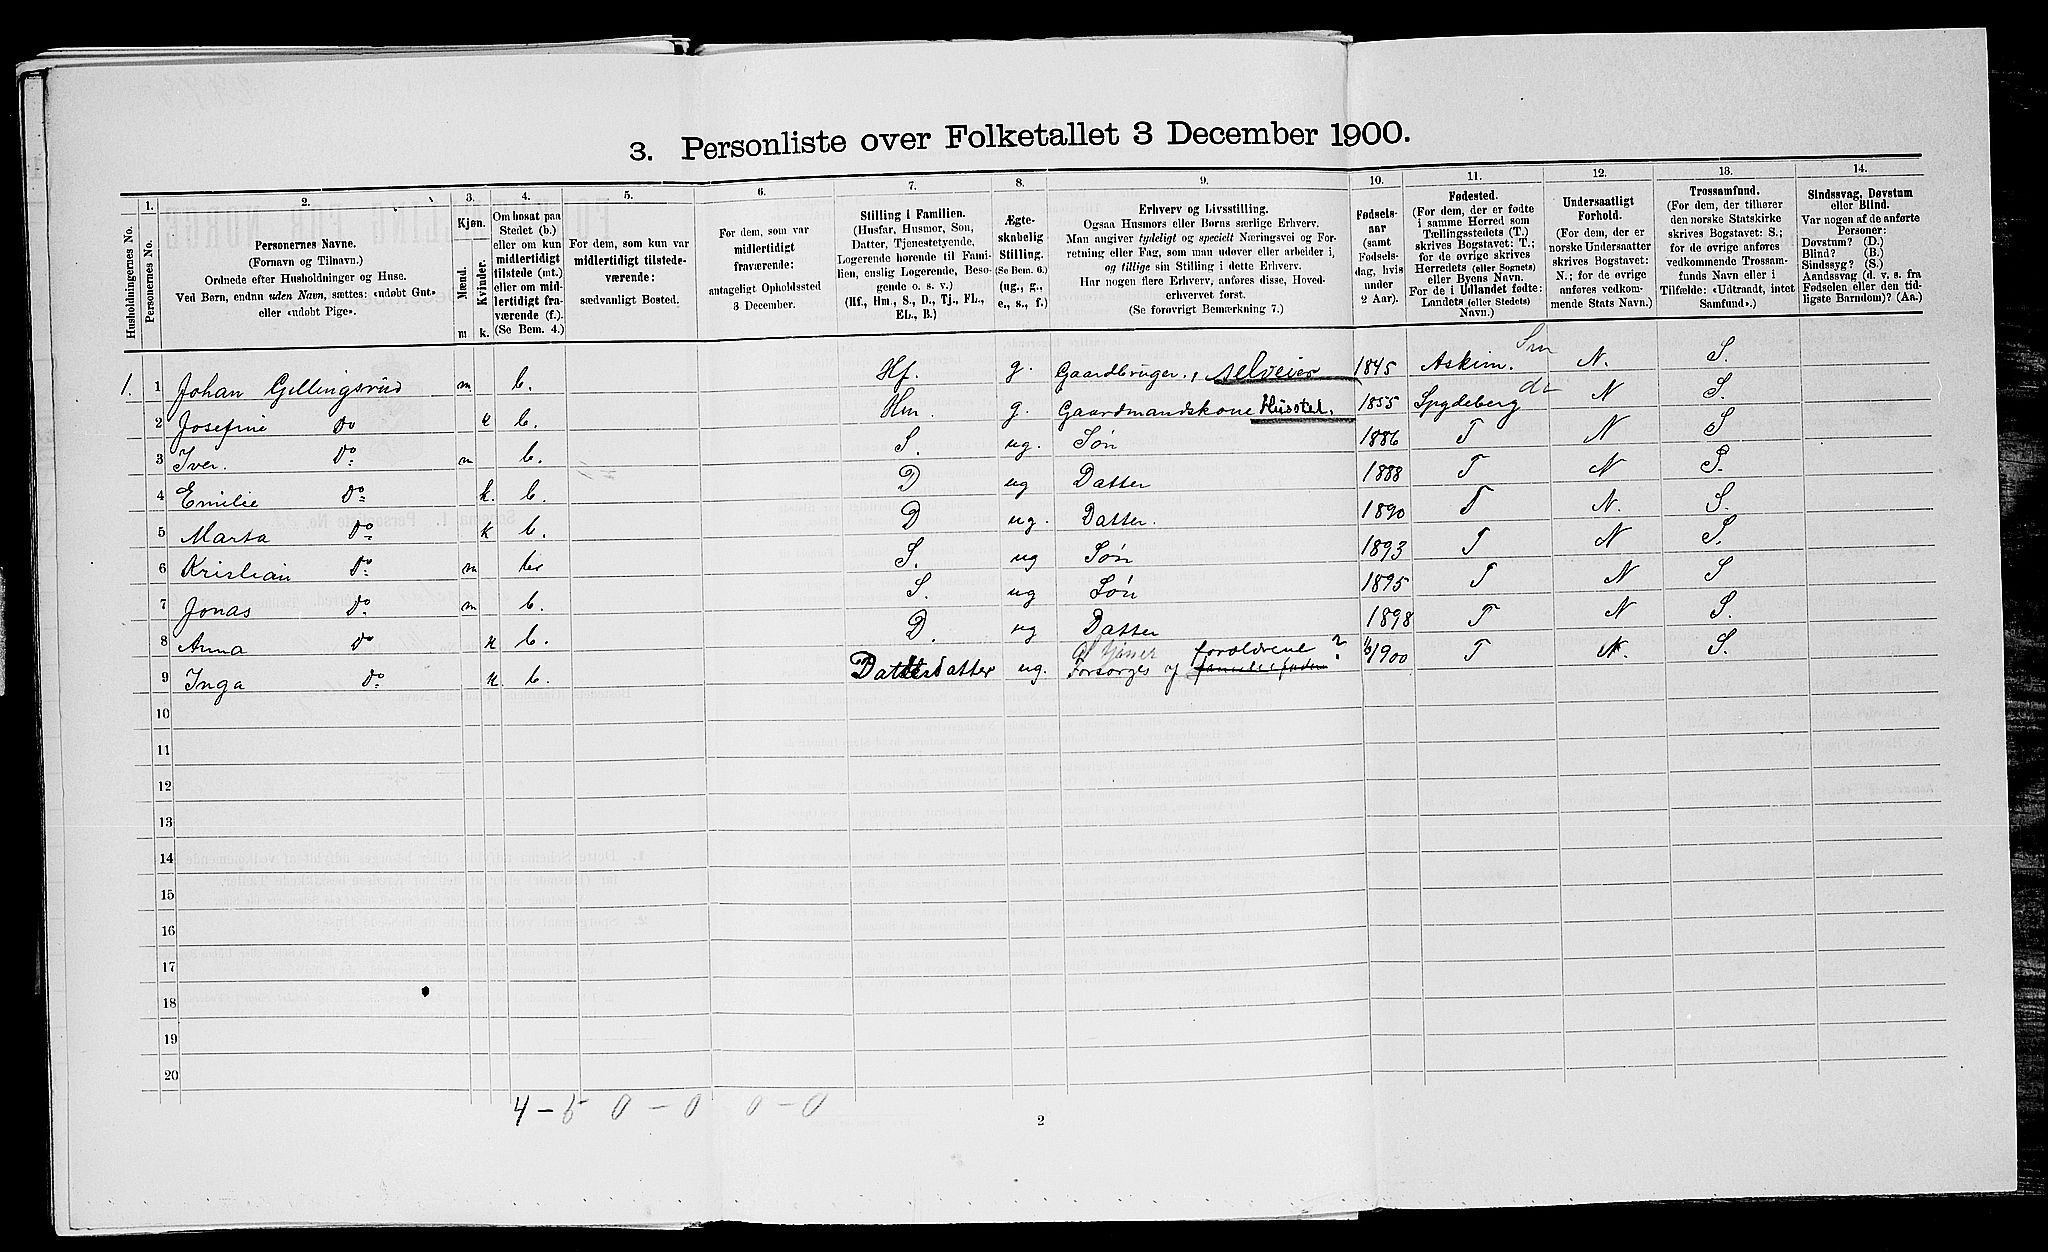 3. Personliste over Folketallet 3 December 1900.
1. 2. 3. 4. 5. 6. 7. 8. 9. 10. 11. 12. 13. 14.
Husholdningernes No.
Personernes No.
Personernes Navne.
(Fornavn og Tilnavn.)
Ordnede efter Husholdninger og Huse.
Ved Børn, endnu uden Navn, sættes: «udøbt Gut»
eller «udøbt Pige».
Kjøn.
Mænd. Kvinder.
m k.
Om bosat paa
Stedet (b.)
eller om kun
midlertidigt
tilstede (mt.)
eller om mid-
lertidigt fra-
værende (f.).
(Se Bem. 4.)
For dem, som kun var
midlertidigt tilstede-
værende:
sædvanligt Bosted.
For dem, som var
midlertidigt
fraværende:
antageligt Opholdssted
3 December.
Stilling i Familien.
(Husfar, Husmor, Søn,
Datter, Tjenestetyende,
Logerende hørende til Fami-
lien, enslig Logerende, Besø-
gende o. s. v.)
(Hf., Hm., S., D., Tj., FL.,
EL., B.)
Ægte-
skabelig
Stilling.
(Se Bem. 6.)
(ug., g.,
e., s., f.)
Erhverv og Livsstilling.
Ogsaa Husmors eller Børns særlige Erhverv.
Man angiver tydeligt og specielt Næringsvei og For-
retning eller Fag, som man udøver eller arbeider i,
og tillige sin Stilling i dette Erhverv.
Har nogen flere Erhverv, anføres disse, Hoved-
erhvervet først.
(Se forøvrigt Bemærkning 7.)
Fødsels-
aar
(samt
Fødsels-
dag, hvis
under
2 Aar).
Fødested.
(For dem, der er fødte
i samme Herred som
Tællingsstedets (T.)
skrives Bogstavet: T.;
for de øvrige skrives
Herredets (eller Sognets)
eller Byens Navn.
For de i Udlandet fødte:
Landets (eller Stedets)
Navn.)
Undersaatligt
Forhold.
(For dem, der er
norske Undersaatter
skrives Bogstavet:
N.; for de øvrige
anføres vedkom-
mende Stats Navn.)
Trossamfund.
(For dem, der tilhører
den norske Statskirke
skrives Bogstavet: S.;
for de øvrige anføres
vedkommende Trossam-
funds Navn eller i
Tilfælde: «Udtraadt, intet
Samfund».)
Sindssvag, Døvstum
eller Blind.
Var nogen af de anførte
Personer:
Døvstum? (D.)
Blind? (B.)
Sindssyg? (S.)
Aandssvag (d. v. s. fra
Fødselen eller den tid-
ligste Barndom)? (Aa.)
1. 1 Johan Gellingsrud m b. Hf. g. Gaardbruger., selveier 1845 Askim. Smn N. S.
2 Josefine Do k b. Hm. g. Gaardmandskone Husstel. 1855 Spydeberg do N S
3 Iver. Do m b. S. ug. Søn 1886 T N S
4 Emilie Do k. b. D ug Datter 1888 T N S.
5 Marta Do k b. D ug. Datter. 1890 T N. S.
6 Kristian Do m b S. ug Søn 1893 T N S.
7 Jonas Do m b. S. ug Søn 1895 T N S
8 Anna Do k b. D. ug Datter 1898 T N S.
forældrene ?
9 Inga Do k b. Datterdatter ug. Forsørges af 1900 T N. S.
10
11
12
13
14
15
16
17
18
19
20
4 - 5 0 - 0 0 - 0
2